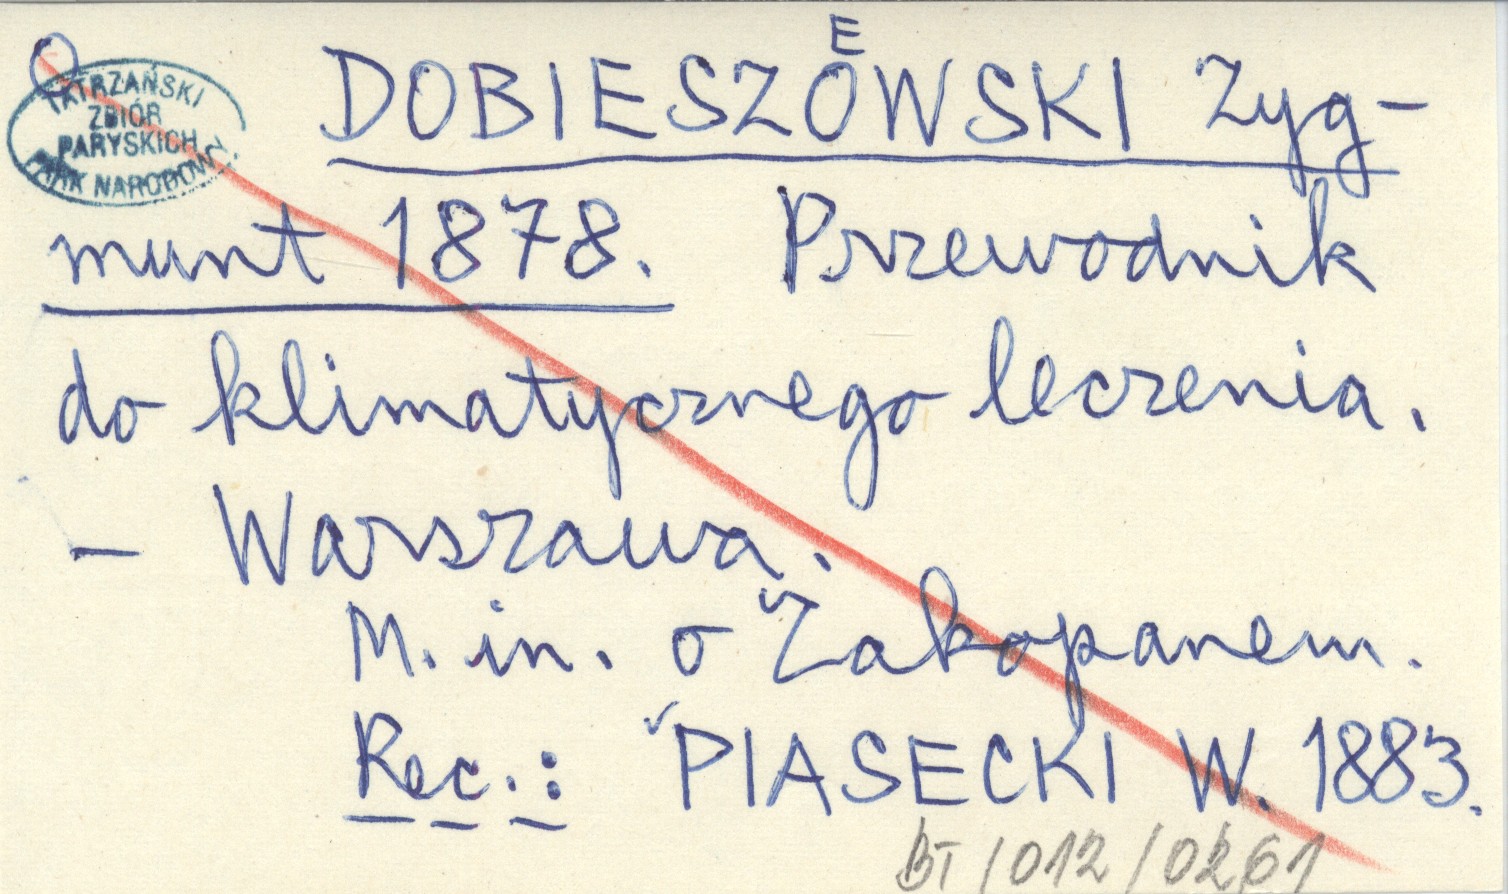 TATRZAŃSKI
ZBIÓR
PARYSKICH
PARK NARODOWY
E
DOBIESZOWSKI Zyg-
munt 1878. Przewodnik
do klimatycznego leczenia.
– Warszawa.
M. in. o Zakopanem.
Rec.: PIASECKI W. 1883.
BT/012/0261